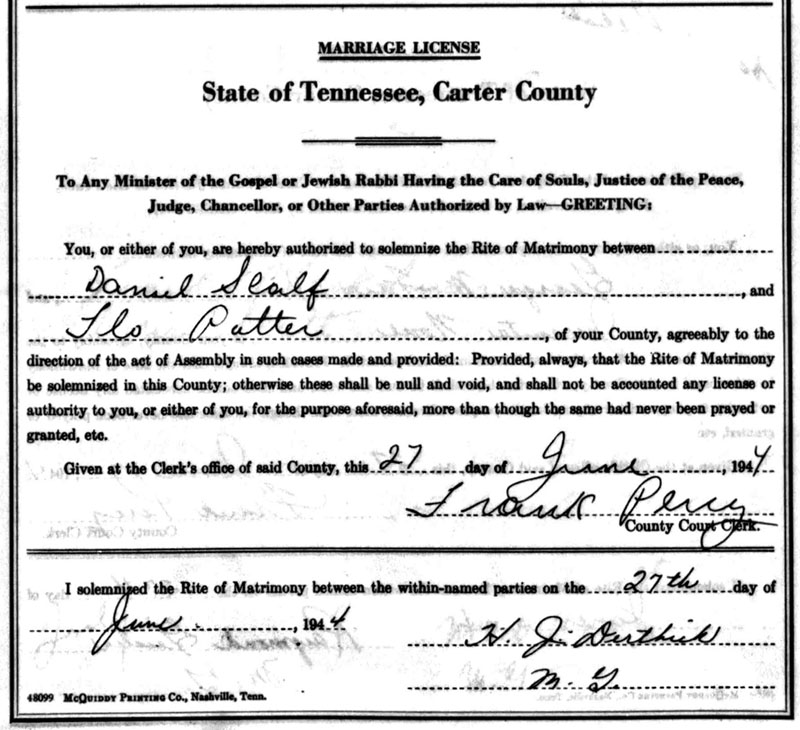 MARRIAGE LICENSE
State of Tennessee, Carter County
To Any Minister of the Gospel or Jewish Rabbi Having the Care of Souls, Justice of the Peace,
Judge, Chancellor, or Other Parties Authorized by Law—GREETING:
You, or either of you, are hereby authorized to solemnize the Rite of Matrimony between
Daniel Scalf, and
Flo Potter, of your County, agreeably to the
direction of the act of Assembly in such cases made and provided: Provided, always, that the Rite of Matrimony
be solemnized in this County; otherwise these shall be null and void, and shall not be accounted any license or
authority to you, or either of you, for the purpose aforesaid, more than though the same had never been prayed or
granted, etc.
Given at the Clerk's office of said County, this 27 day of June, 1944
Frank Percy
County Court Clerk.
I solemnized the Rite of Matrimony between the within-named parties on the 27th day of
June, 1944
H. J. Derthick
M. G
48099 McQUIDDY PRINTING CO., Nashville, Tenn.